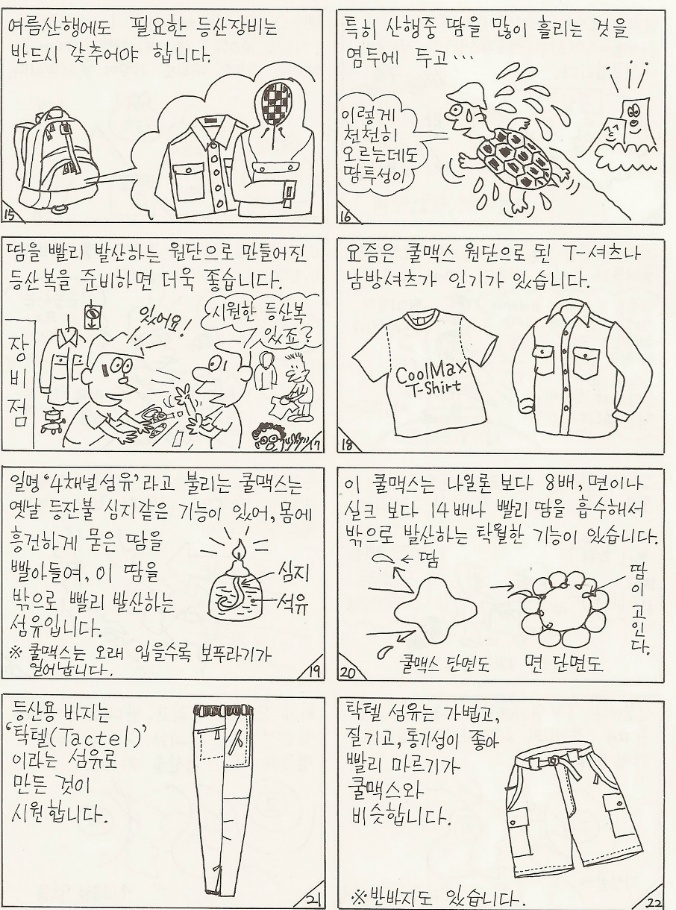 여름산행에도 필요한 등산장비는
반드시 갖추어야 합니다.
15
특히 산행중 땀을 많이 흘리는 것을
염두에 두고…
이렇게
천천히
오르는데도
땀투성이
16
땀을 빨리 발산하는 원단으로 만들어진
등산복을 준비하면 더욱 좋습니다.
장비점
있어요!
시원한 등산복
있죠?
17
요즘은 쿨맥스 원단으로 된 T-셔츠나
남방셔츠가 인기가 있습니다.
CoolMax
T-Shirt
18
일명 '4채널 섬유'라고 불리는 쿨맥스는
옛날 등잔불 심지같은 기능이 있어, 몸에
흥건하게 묻은 땀을
빨아들여, 이 땀을
밖으로 빨리 발산하는
섬유입니다.
심지
석유
※ 쿨맥스는 오래 입을수록 보푸라기가
일어납니다.
19
이 쿨맥스는 나일론 보다 8배, 면이나
실크 보다 14배나 빨리 땀을 흡수해서
밖으로 발산하는 탁월한 기능이 있습니다.
←땀
땀이 고인다.
쿨맥스 단면도
면 단면도
20
등산용 바지는
'탁텔(Tactel)'
이라는 섬유로
만든 것이
시원합니다.
21
탁텔 섬유는 가볍고,
질기고, 통기성이 좋아
빨리 마르기가
쿨맥스와
비슷합니다.
※반바지도 있습니다.
22